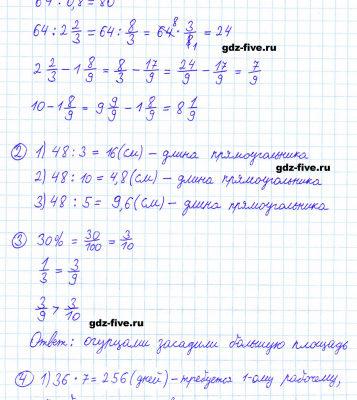 64 : 0,8 = 80
64 : 2 2/3 = 64 : 8/3 = 64 8 · 3/8 1 = 24
gdz-five.ru
2 2/3 - 1 8/9 = 8/3 - 17/9 = 24/9 - 17/9 = 7/9
10 - 1 8/9 = 9 9/9 - 1 8/9 = 8 1/9
② 1) 48 : 3 = 16 (см) - длина прямоугольника
gdz-five.ru
2) 48 : 10 = 4,8 (см) - длина прямоугольника
3) 48 : 5 = 9,6 (см) - длина прямоугольника
③ 30% = 30/100 = 3/10
1/3 = 3/9
3/9 > 3/10
gdz-five.ru
Ответ: огурцами засадили большую площадь
④ 1) 36 · 7 = 256 (дней) - требуется 1-ому рабочему,